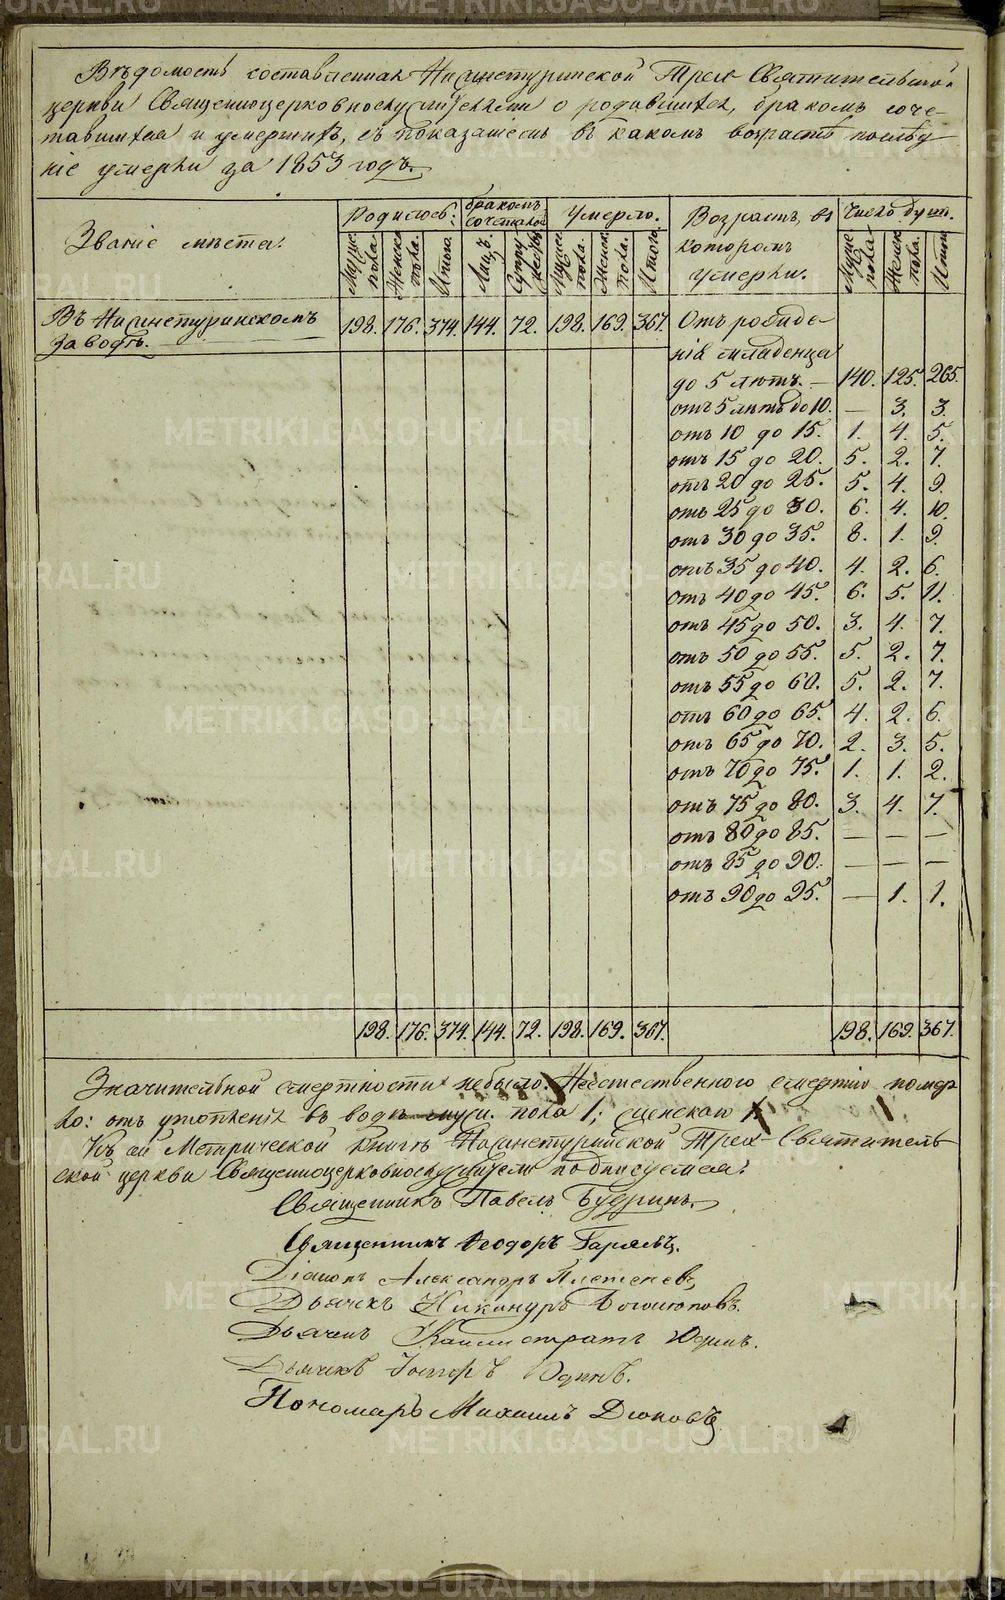 Вѣдомость составленная Нижнетуринской Трех-Святительской
церкви Священноцерковнослужителями о родившихся, бракомъ соче-
тавшихся и умершихъ, съ показаніемъ въ какомъ возрастѣ послѣд
ніе умерли за 1853 годъ.
Званіе мѣста. Родилось: бракомъ сочеталось Умерло. Возрастъ, въ которомъ умерли. Число душъ.
Муже пола. Женск. пола. Итого. Лицъ. Супружествъ Муже пола. Женск. пола. Итого. Муже пола. Женск. пола. Итого
Въ Нижнетуринскомъ 198. 176. 374. 144. 72. 198. 169. 367. Отъ рожде-
заводѣ. нія младенца
до 5 лѣтъ. — 140. 125. 265.
отъ 5 лѣтъ до 10. — 3. 3.
отъ 10 до 15. 1. 4. 5.
отъ 15 до 20. 5. 2. 7.
отъ 20 до 25. 5. 4. 9.
отъ 25 до 30. 6. 4. 10.
отъ 30 до 35. 8. 1. 9.
отъ 35 до 40. 4. 2. 6.
отъ 40 до 45. 6. 5. 11.
отъ 45 до 50. 3. 4. 7.
отъ 50 до 55. 5. 2. 7.
отъ 55 до 60. 5. 2. 7.
отъ 60 до 65. 4. 2. 6.
отъ 65 до 70. 2. 3. 5.
отъ 70 до 75. 1. 1. 2.
отъ 75 до 80. 3. 4. 7.
отъ 80 до 85. — — —
отъ 85 до 90. — — —
отъ 90 до 95. — 1. 1.
198. 176. 374. 144. 72. 198. 169. 367. 198. 169. 367.
Значительной смертности небыло. Неестественного смертію померло: отъ утопленія въ водѣ муж. пола 1; женскаго 1
Къ сей Метрической книгѣ Нижнетуринской Трех-Святитель-
ской церкви Священноцерковнослужители подписуемся:
Священникъ Павелъ Будринъ.
Священникъ Феодоръ
Діаконъ Александръ Плетеневъ
Дьячекъ Никандръ
Дьячекъ Каллистратъ Юдинъ.
Дьячекъ Юдинъ.
Пономарь Михаилъ Дюковъ
METRIKI.GASO-URAL.RU